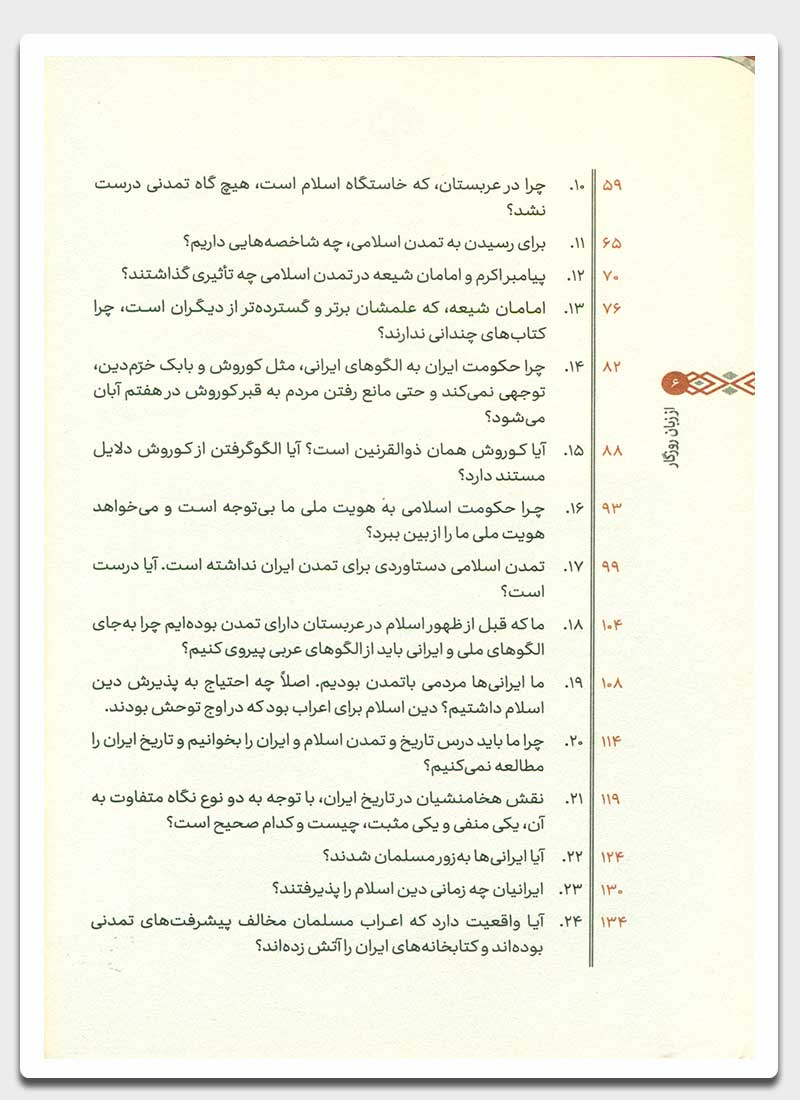 ۵۹ ۱۰. چرا در عربستان، که خاستگاه اسلام است، هیچ گاه تمدنی درست
نشد؟
۶۵ ۱۱. برای رسیدن به تمدن اسلامی، چه شاخصه‌هایی داریم؟
۷۰ ۱۲. پیامبر اکرم و امامان شیعه در تمدن اسلامی چه تأثیری گذاشتند؟
۷۶ ۱۳. امامان شیعه، که علمشان برتر و گسترده‌تر از دیگران است، چرا
کتاب‌های چندانی ندارند؟
۸۲ ۱۴. چرا حکومت ایران به الگوهای ایرانی، مثل کوروش و بابک خرّم‌دین،
توجهی نمی‌کند و حتی مانع رفتن مردم به قبر کوروش در هفتم آبان
می‌شود؟
۸۸ ۱۵. آیا کوروش همان ذوالقرنین است؟ آیا الگوگرفتن از کوروش دلایل
مستند دارد؟
۹۳ ۱۶. چرا حکومت اسلامی به هویت ملی ما بی‌توجه است و می‌خواهد
هویت ملی ما را از بین ببرد؟
۹۹ ۱۷. تمدن اسلامی دستاوردی برای تمدن ایران نداشته است. آیا درست
است؟
۱۰۴ ۱۸. ما که قبل از ظهور اسلام در عربستان دارای تمدن بوده‌ایم چرا به‌جای
الگوهای ملی و ایرانی باید از الگوهای عربی پیروی کنیم؟
۱۰۸ ۱۹. ما ایرانی‌ها مردمی باتمدن بودیم. اصلاً چه احتیاج به پذیرش دین
اسلام داشتیم؟ دین اسلام برای اعراب بود که در اوج توحش بودند.
۱۱۴ ۲۰. چرا ما باید درس تاریخ و تمدن اسلام و ایران را بخوانیم و تاریخ ایران را
مطالعه نمی‌کنیم؟
۱۱۹ ۲۱. نقش هخامنشیان در تاریخ ایران، با توجه به دو نوع نگاه متفاوت به
آن، یکی منفی و یکی مثبت، چیست و کدام صحیح است؟
۱۲۴ ۲۲. آیا ایرانی‌ها به‌زور مسلمان شدند؟
۱۳۰ ۲۳. ایرانیان چه زمانی دین اسلام را پذیرفتند؟
۱۳۴ ۲۴. آیا واقعیت دارد که اعراب مسلمان مخالف پیشرفت‌های تمدنی
بوده‌اند و کتابخانه‌های ایران را آتش زده‌اند؟
۶
از زبان روزگار